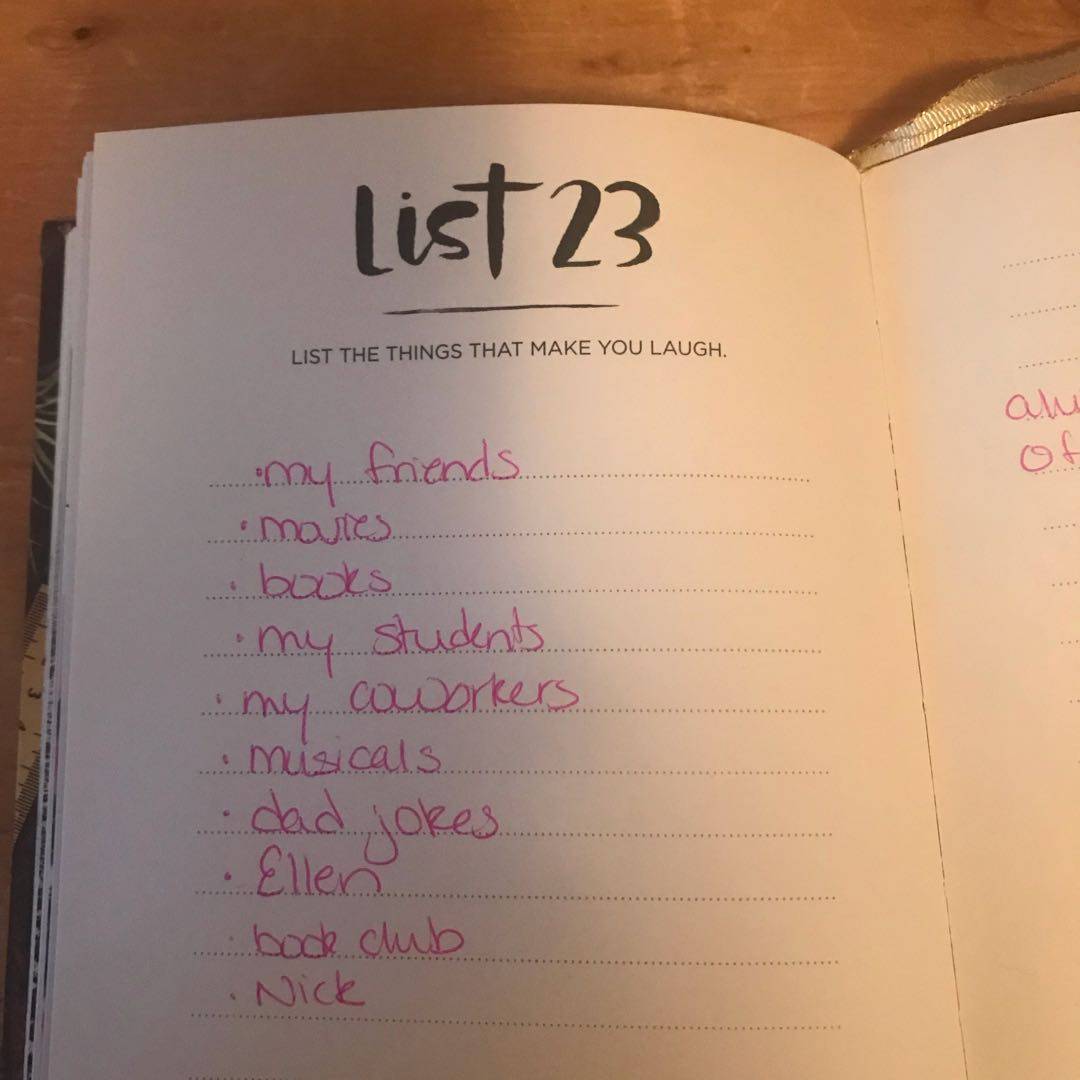 List 23
LIST THE THINGS THAT MAKE YOU LAUGH.
• my friends
• movies
• books
• my students
• my coworkers
• musicals
• dad jokes
• Ellen
• book club
• Nick
of